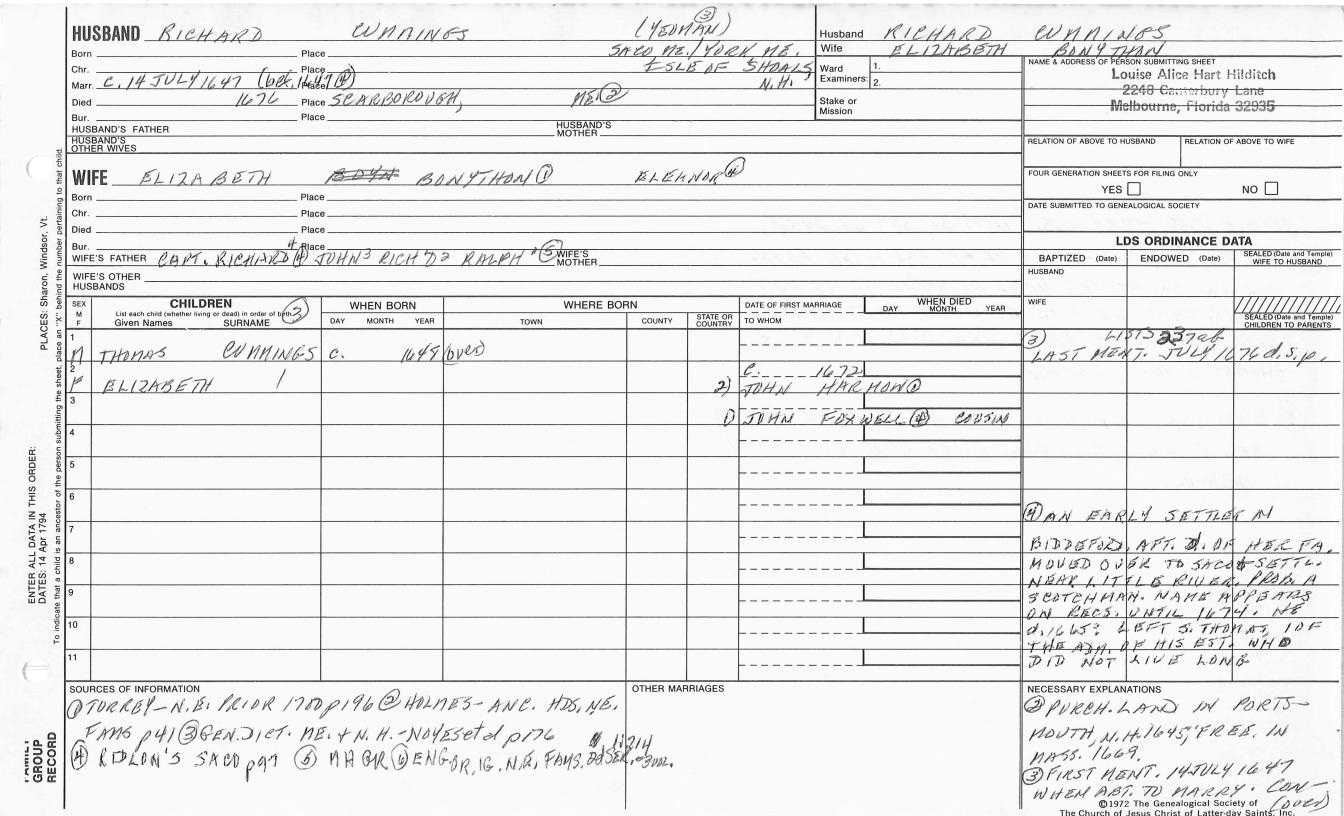 HUSBAND RICHARD CUMMINGS (YEOMAN) ③
Born Place SACO ME./YORK ME.
Chr. Place ISLE OF SHOALS,
Marr. C. 14 JULY 1647 (bef. 1647 ④) Place N.H.
Died 1676 Place SCARBOROUGH, ME ②
Bur. Place
HUSBAND'S FATHER HUSBAND'S MOTHER
HUSBAND'S OTHER WIVES
Husband RICHARD CUMMINGS
Wife ELIZABETH BONYTHAN
Ward Examiners: 1.
2.
Stake or Mission
NAME & ADDRESS OF PERSON SUBMITTING SHEET
Louise Alice Hart Hilditch
2248 Canterbury Lane
Melbourne, Florida 32935
RELATION OF ABOVE TO HUSBAND RELATION OF ABOVE TO WIFE
FOUR GENERATION SHEETS FOR FILING ONLY
YES NO
DATE SUBMITTED TO GENEALOGICAL SOCIETY
WIFE ELIZABETH BONYTHON ① ELEANOR ④
Born Place
Chr. Place
Died Place
Bur. Place
WIFE'S FATHER CAPT. RICHARD 4 ④ JOHN 3 RICH'D 2 RALPH 1 ⑤ WIFE'S MOTHER
WIFE'S OTHER HUSBANDS
LDS ORDINANCE DATA
BAPTIZED (Date) ENDOWED (Date) SEALED (Date and Temple) WIFE TO HUSBAND
HUSBAND
WIFE
SEALED (Date and Temple) CHILDREN TO PARENTS
SEX M F
CHILDREN ③
List each child (whether living or dead) in order of birth
Given Names SURNAME
WHEN BORN
DAY MONTH YEAR
WHERE BORN
TOWN COUNTY STATE OR COUNTRY
DATE OF FIRST MARRIAGE
TO WHOM
WHEN DIED
DAY MONTH YEAR
1
M THOMAS CUMMINGS C. 1649 (over)
③ LISTS 237ab
LAST MENT. JULY 1676 d.s.p.
2
F ELIZABETH / C. 1672
2) JOHN HARMON ①
3
1) JOHN FOXWELL ④ COUSIN
4
5
6
7
8
9
10
11
④ AN EARLY SETTLER IN
BIDDEFORD, AFT. d. OF HER FA.
MOVED OVER TO SACO & SETTL.
NEAR LITTLE RIVER. PROB. A
SCOTCHMAN. NAME APPEARS
ON RECS. UNTIL 1674. HE
d. 1665? LEFT S. THOMAS, 1 OF
THE ADM. OF HIS EST. WHO
DID NOT LIVE LONG
SOURCES OF INFORMATION
① TORREY - N.E. PRIOR 1700 p196 ② HOLMES - ANC. HDS, NE.
FAMS p41 ③ GEN. DICT. ME. & N.H. - NOYES etd p176
④ RIDLON'S SACO p97 ⑤ MHGR ⑥ ENG OR, IG. N.E. FAMS. 2d SER.
OTHER MARRIAGES
NECESSARY EXPLANATIONS
② PURCH. LAND IN PORTS-
MOUTH, N.H. 1645; FREE. IN
MASS. 1669.
③ FIRST MENT. 14 JULY 1647
WHEN ABT. TO MARRY. CON-
(over)
©1972 The Genealogical Society of
The Church of Jesus Christ of Latter-day Saints, Inc.
PLACES: Sharon, Windsor, Vt.
ENTER ALL DATA IN THIS ORDER:
DATES: 14 Apr 1794
To indicate that a child is an ancestor of the person submitting the sheet, place an "X" behind the number pertaining to that child.
FAMILY GROUP RECORD